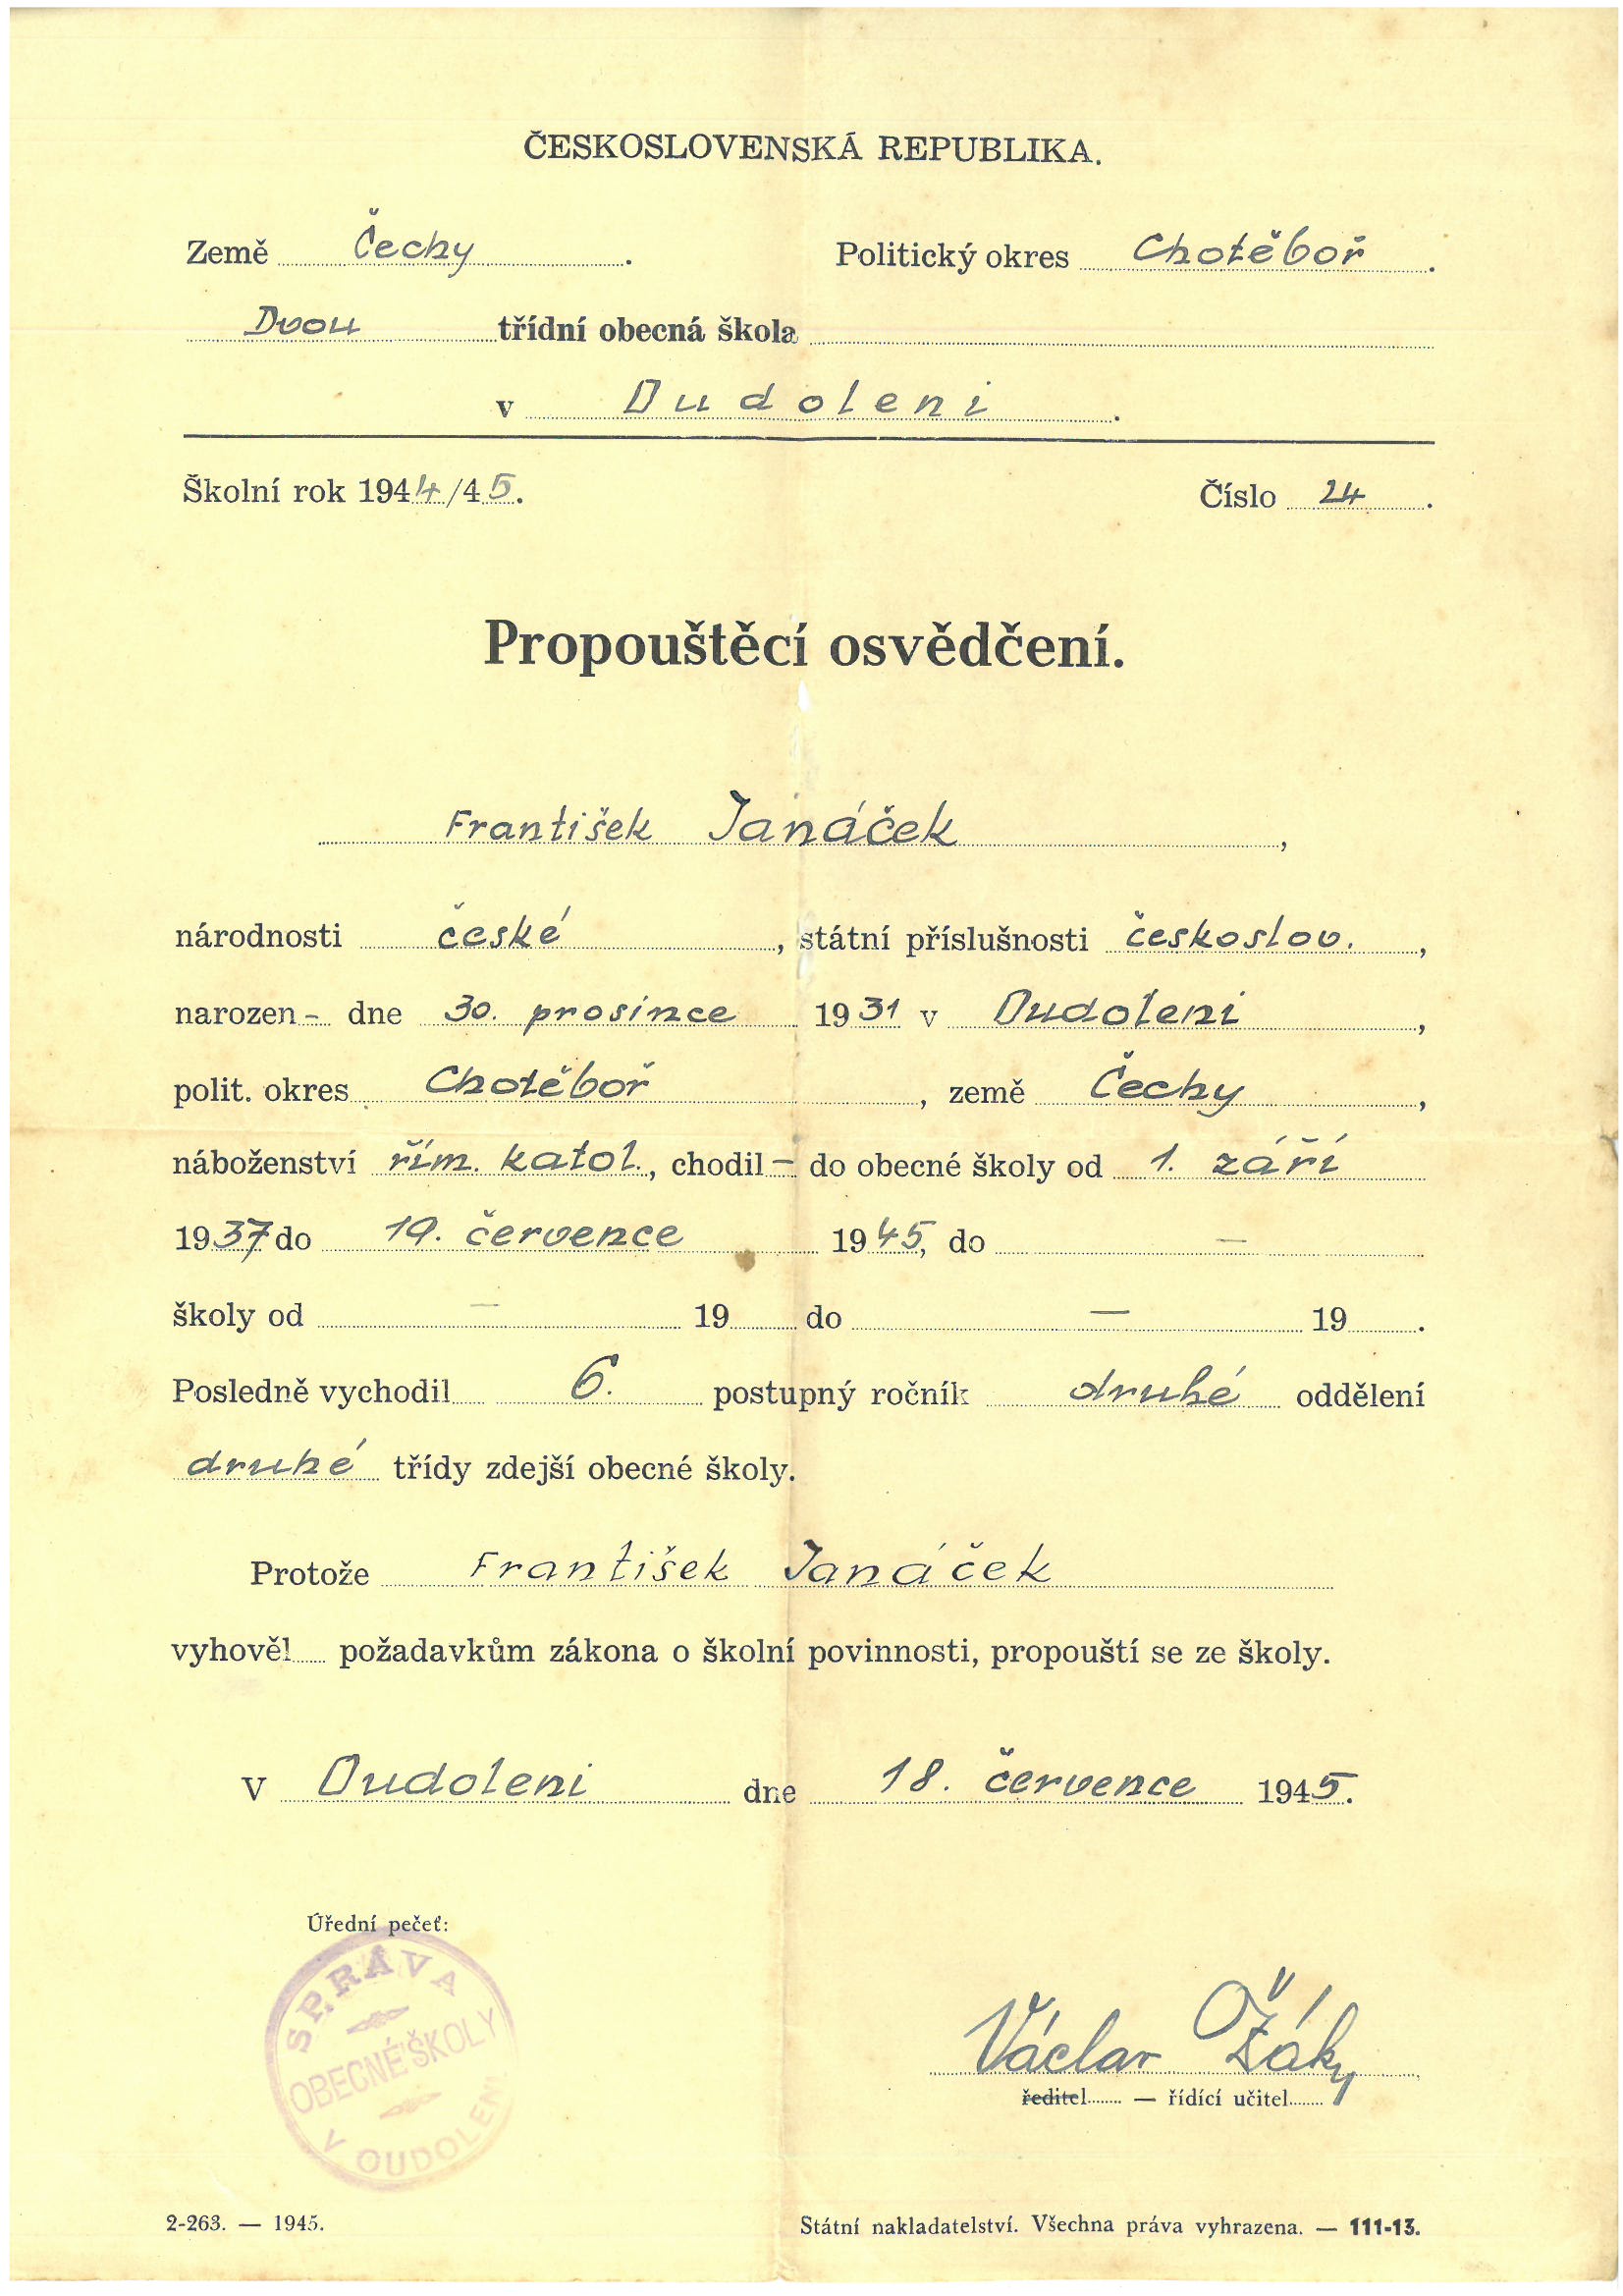 ČESKOSLOVENSKÁ REPUBLIKA.
Země Čechy. Politický okres Chotěboř.
Dvou třídní obecná škola
v Oudoleni.
Školní rok 1944/45. Číslo 24.
Propouštěcí osvědčení.
František Janáček,
národnosti české, státní příslušnosti českoslov.,
narozen - dne 30. prosince 1931 v Oudoleni,
polit. okres Chotěboř, země Čechy,
náboženství řím. katol., chodil - do obecné školy od 1. září
1937 do 19. července 1945, do —
školy od — 19 do — 19 .
Posledně vychodil 6. postupný ročník druhé oddělení
druhé třídy zdejší obecné školy.
Protože František Janáček
vyhověl požadavkům zákona o školní povinnosti, propouští se ze školy.
V Oudoleni dne 18. července 1945.
Úřední pečeť:
SPRÁVA
OBECNÉ ŠKOLY
V OUDOLENI
Václav Žáky
ředitel — řídící učitel
2-263. — 1945. Státní nakladatelství. Všechna práva vyhrazena. — 111-13.